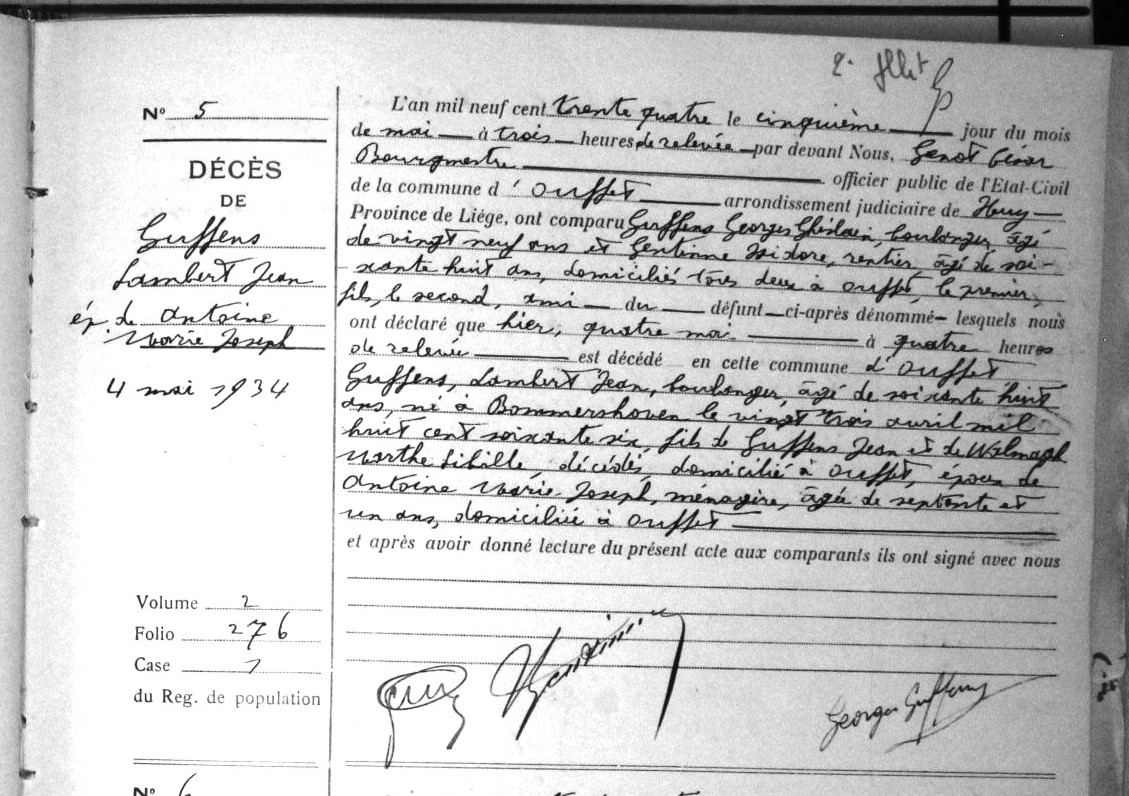 Nº 5
DÉCÈS
DE
Guffens
Lambert Jean
ép. de Antoine
Marie Joseph
4 mai 1934
Volume 2
Folio 276
Case 1
du Reg. de population
Nº 6
L'an mil neuf cent trente quatre le cinquième jour du mois
de mai à trois heures de relevée par devant Nous, Genot
Bourgmestre officier public de l'Etat-Civil
de la commune d'Ouffet arrondissement judiciaire de Huy
Province de Liége, ont comparu Guffens Georges Ghislain, boulanger, âgé
de vingt neuf ans et Gentinne Isidore, rentier, âgé de soi-
xante huit ans, domiciliés tous deux à Ouffet, le premier,
fils, le second, ami du défunt ci-après dénommé lesquels nous
ont déclaré que hier, quatre mai à quatre heures
de relevée est décédé en cette commune d'Ouffet
Guffens, Lambert Jean, boulanger, âgé de soixante huit
ans, né à Bommershoven le vingt trois avril mil
huit cent soixante six, fils de Guffens Jean et de
Marthe Sibille, décédés, domicilié à Ouffet, époux de
Antoine Marie Joseph, ménagère, âgée de septante et
un ans, domiciliée à Ouffet
et après avoir donné lecture du présent acte aux comparants ils ont signé avec nous
Georges Guffens